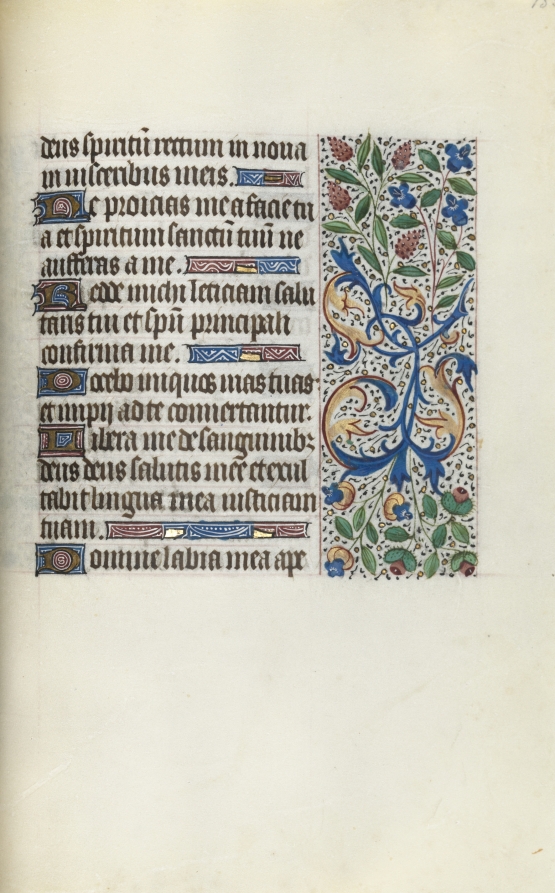 deus spiritū rectum in noua
in uisceribus meis.
Ne proicias me a facie tu
a et spiritum sanctū tuū ne
aufferas a me.
Redde michi leticiam salu
taris tui et spū principali
confirma me.
Docebo iniquos uias tuas
et impij ad te conuertantur.
Libera me de sanguinibꝫ
deus deus salutis mee et exul
tabit lingua mea iusticiam
tuam.
Domine labia mea ape